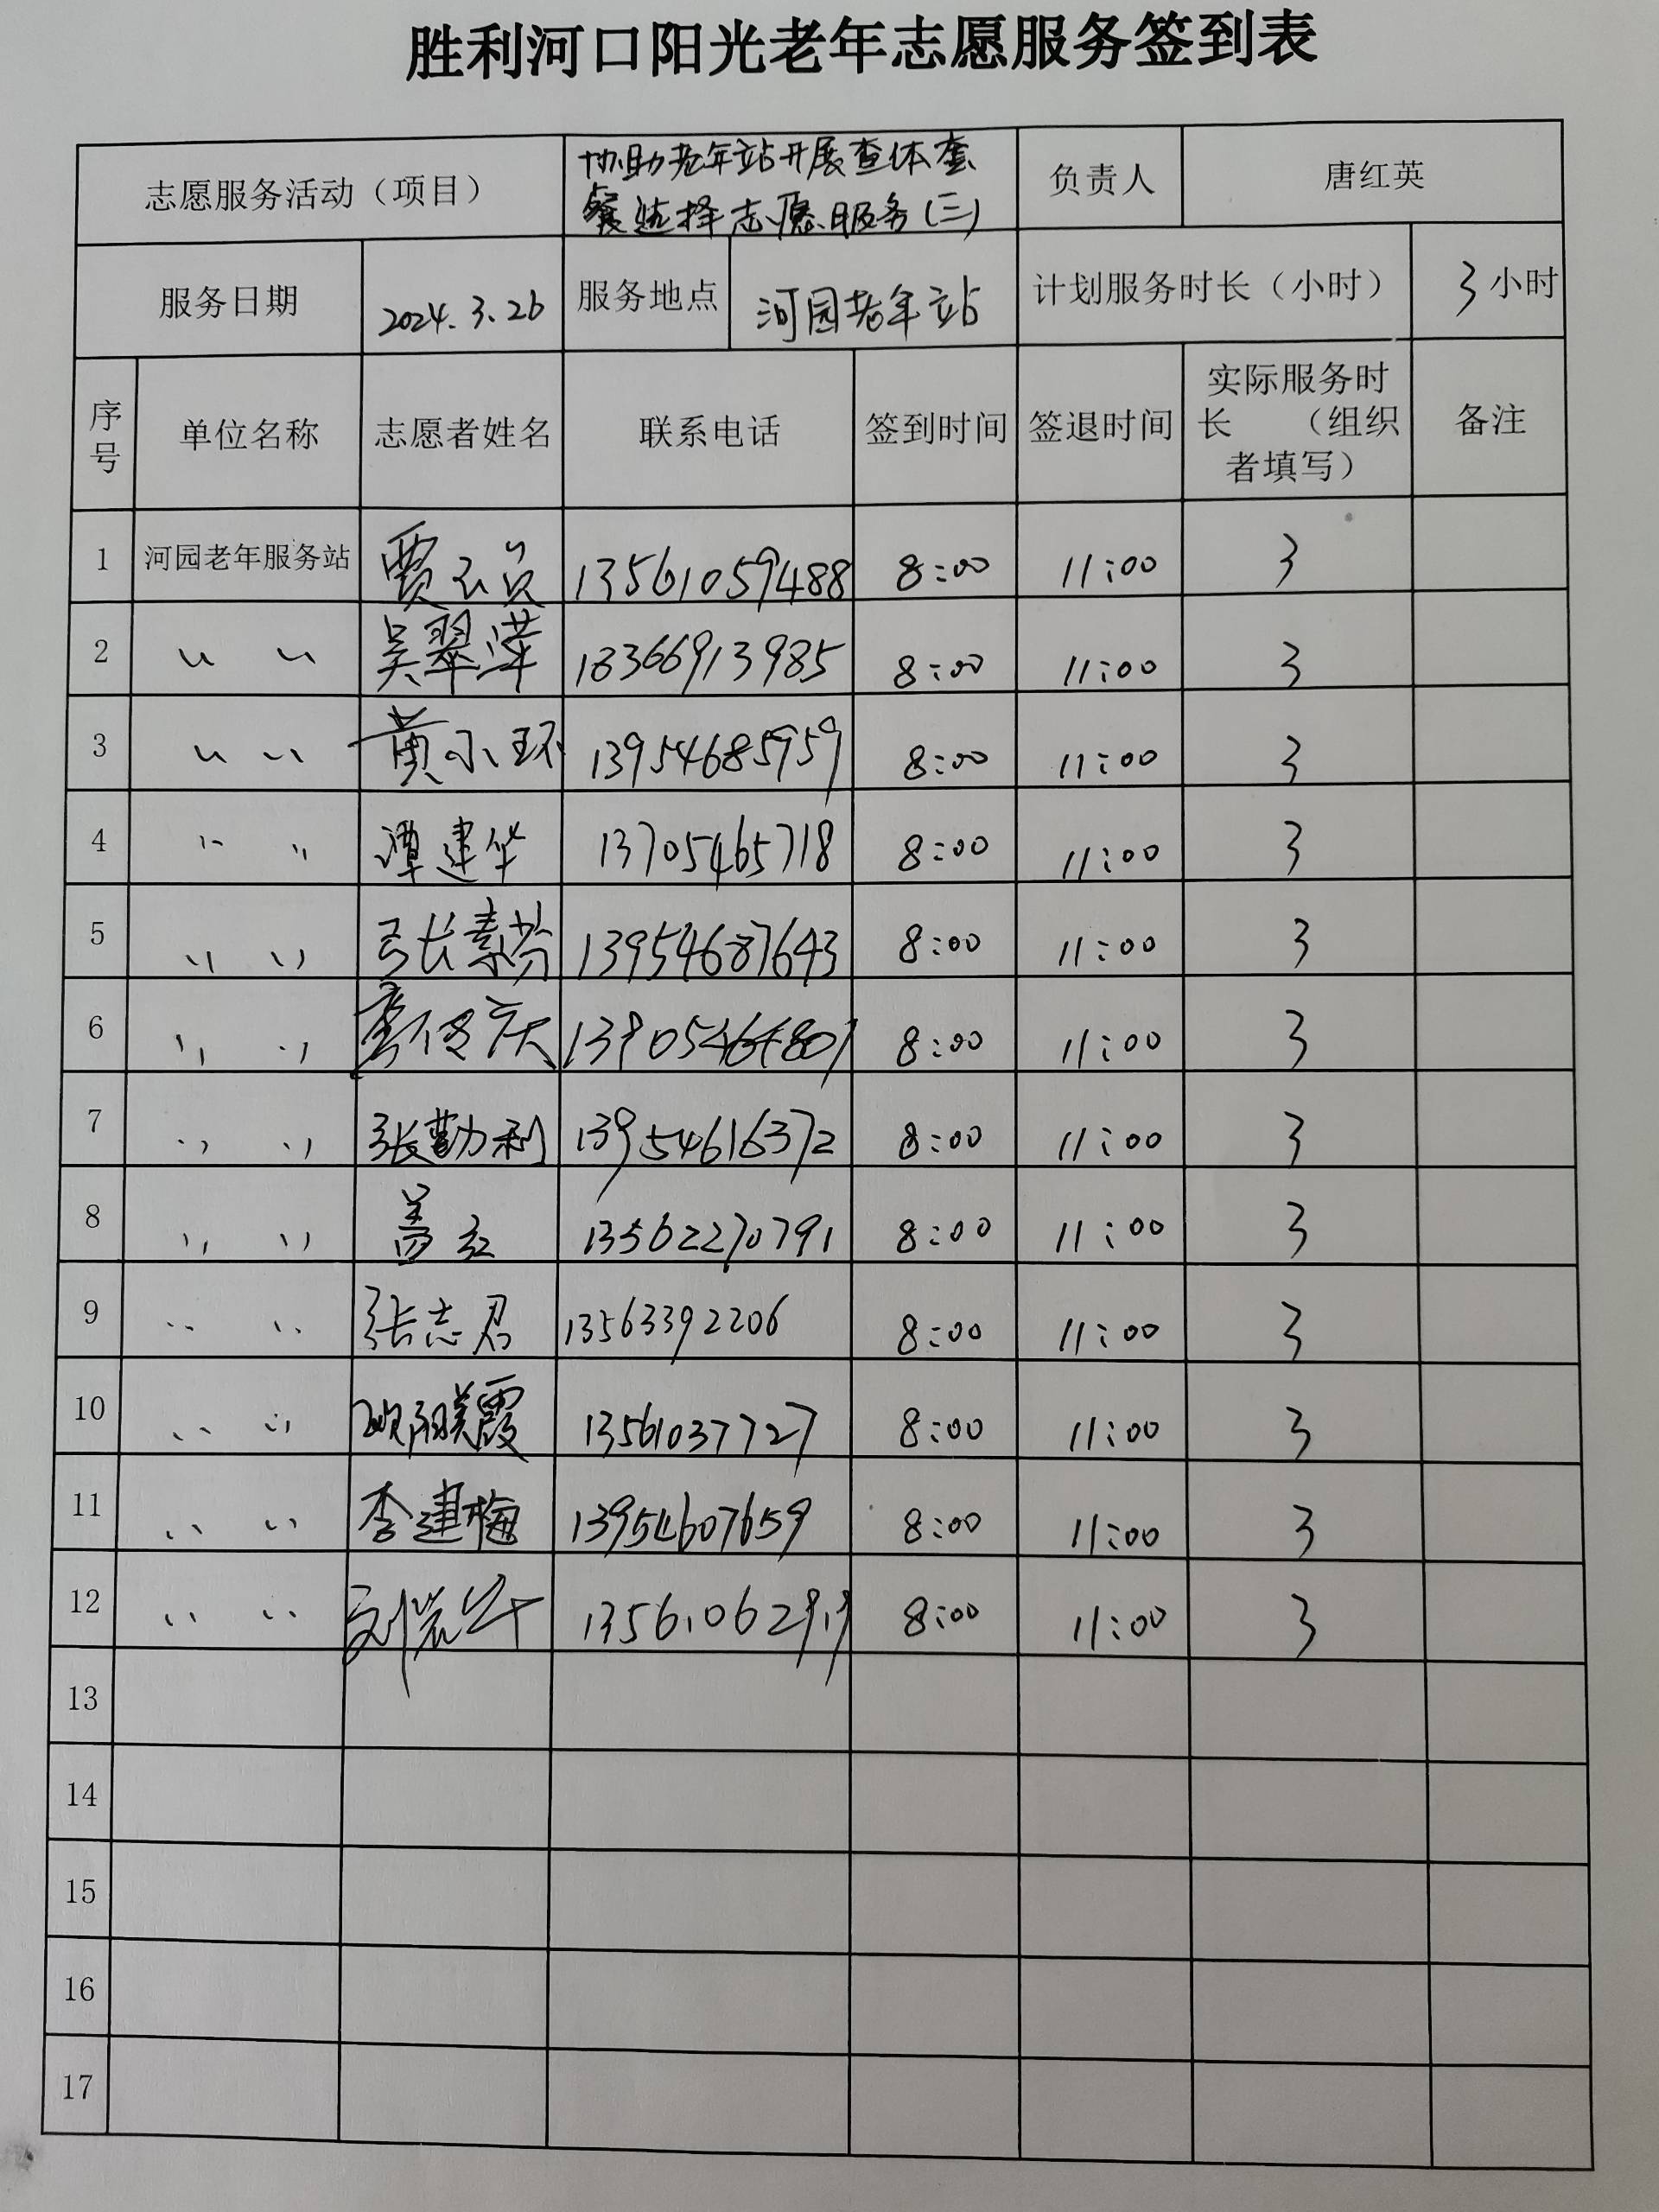 胜利河口阳光老年志愿服务签到表
志愿服务活动（项目） 协助老年站开展查体套 负责人 唐红英
餐选择志愿服务(三)
服务日期 2024.3.26 服务地点 河园老年站 计划服务时长（小时） 3小时
序号 单位名称 志愿者姓名 联系电话 签到时间 签退时间 实际服务时长 （组织者填写） 备注
1 河园老年服务站 贾玉贞 13561059488 8:00 11:00 3
2 〃 〃 吴翠萍 18366913985 8:00 11:00 3
3 〃 〃 黄小环 13954685959 8:00 11:00 3
4 〃 〃 谭建华 13705465718 8:00 11:00 3
5 〃 〃 张素芬 13954687643 8:00 11:00 3
6 〃 〃 8:00 11:00 3
7 〃 〃 张勤利 13954616372 8:00 11:00 3
8 〃 〃 盖红 13562270791 8:00 11:00 3
9 〃 〃 张志君 13563392206 8:00 11:00 3
10 〃 〃 欧阳美霞 13561037727 8:00 11:00 3
11 〃 〃 李建梅 13954607659 8:00 11:00 3
12 〃 〃 8:00 11:00 3
13
14
15
16
17